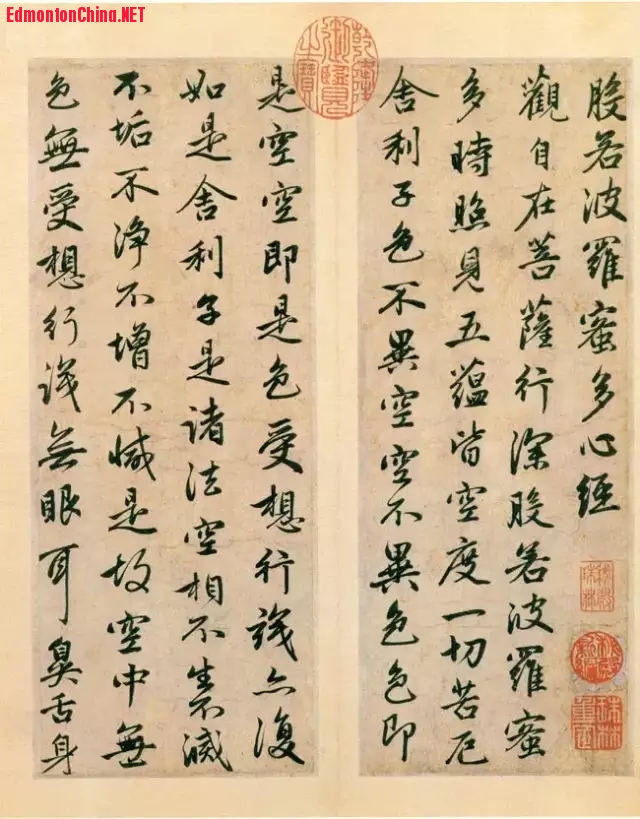 EdmontonChina.NET
般若波羅蜜多心經
觀自在菩薩行深般若波羅蜜
多時照見五蘊皆空度一切苦厄
舍利子色不異空空不異色色即
是空空即是色受想行識亦復
如是舍利子是諸法空相不生不滅
不垢不淨不增不減是故空中無
色無受想行識無眼耳鼻舌身
乾隆御覽之寶